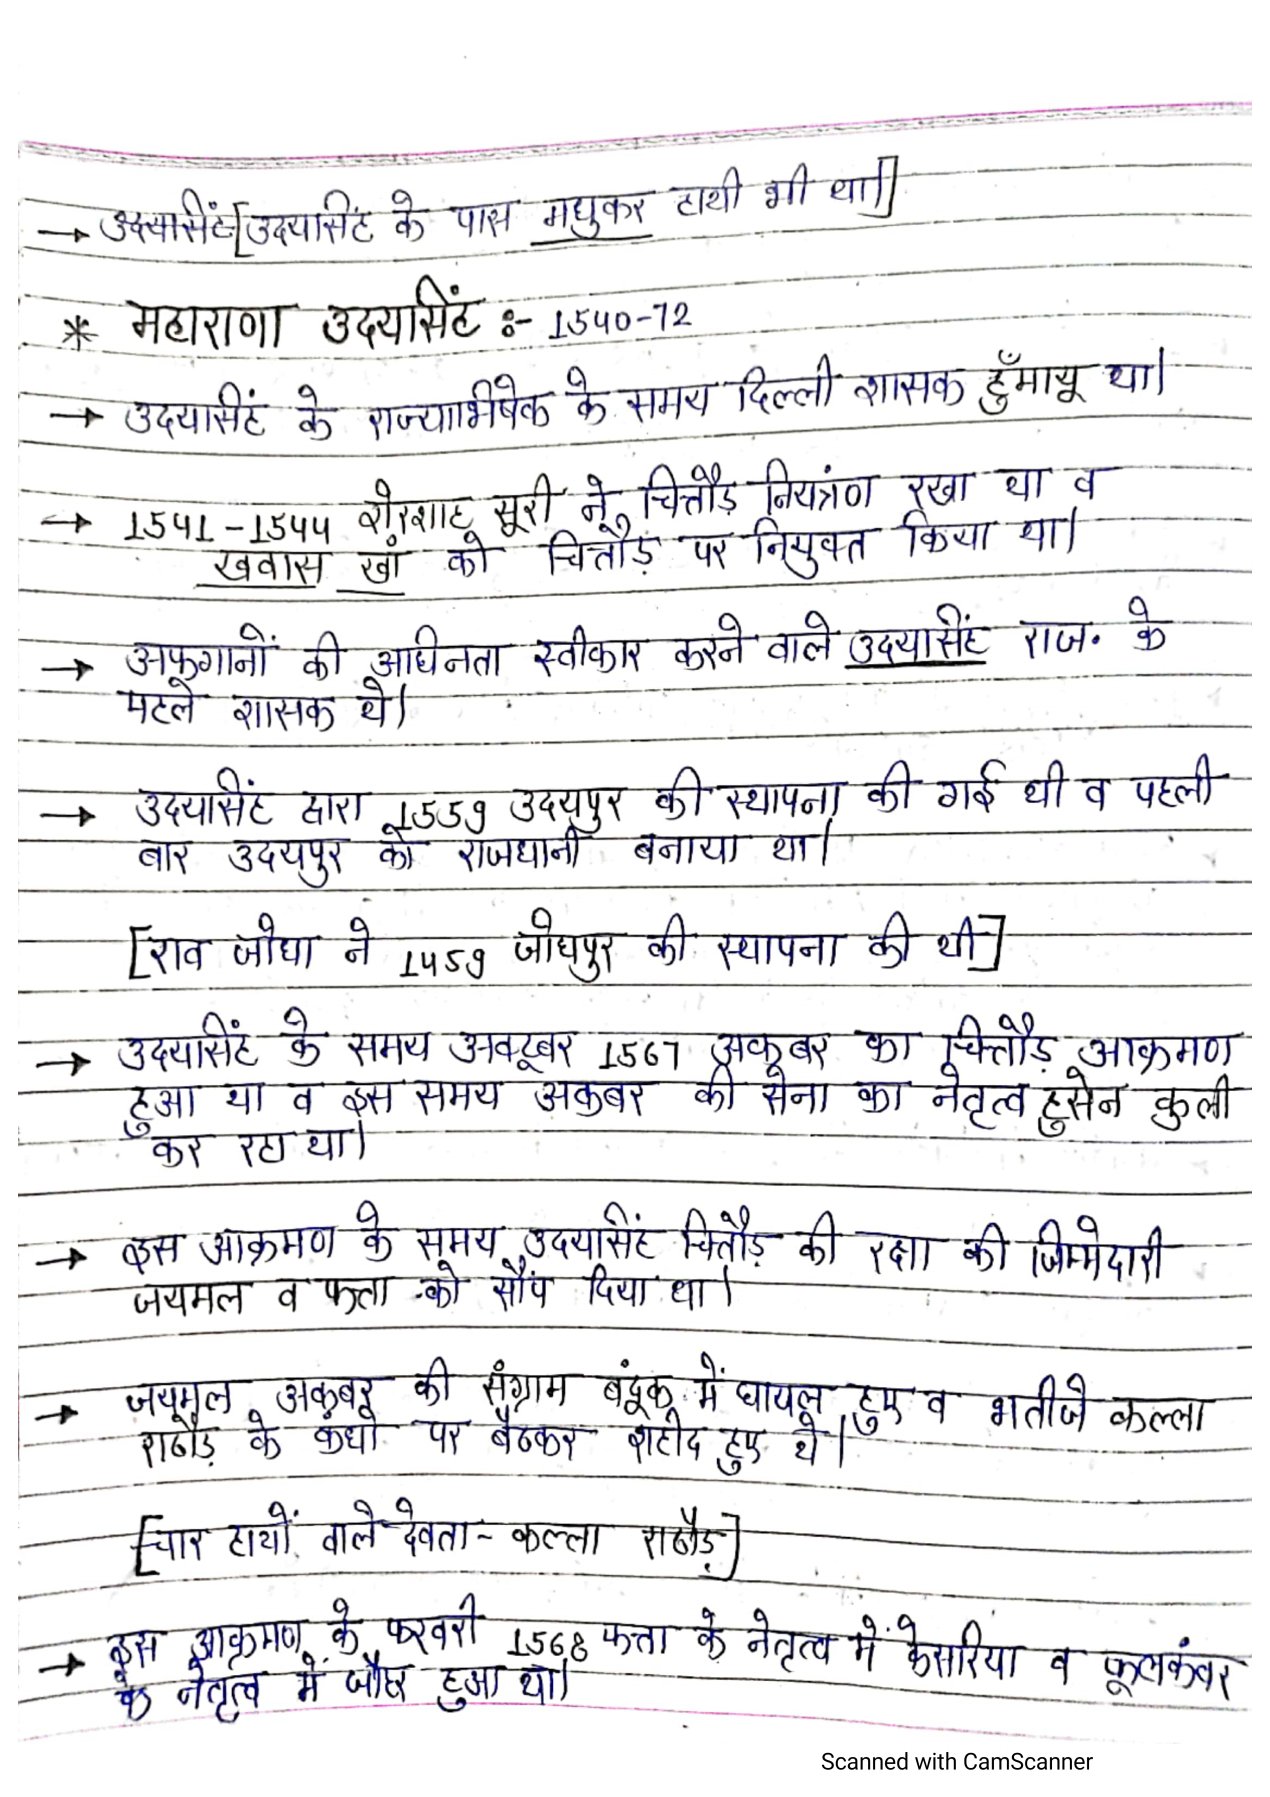 → उदयसिंह [उदयसिंह के पास मधुकर हाथी भी था।]
* महाराणा उदयसिंह :- 1540-72
→ उदयसिंह के राज्याभिषेक के समय दिल्ली शासक हुँमायू था।
→ 1541-1544 शेरशाह सूरी ने चित्तौड़ नियत्रंण रखा था व
खवास खां को चित्तौड़ पर नियुक्त किया था।
→ अफगानों की अधिनता स्वीकार करने वाले उदयसिंह राज. के
पहले शासक थे।
→ उदयसिंह द्वारा 1559 उदयपुर की स्थापना की गई थी व पहली
बार उदयपुर को राजधानी बनाया था।
[राव जोधा ने 1459 जोधपुर की स्थापना की थी]
→ उदयसिंह के समय अक्टूबर 1567 अकबर का चित्तौड़ आक्रमण
हुआ था व इस समय अकबर की सेना का नेतृत्व हुसेन कुली
कर रहा था।
→ इस आक्रमण के समय उदयसिंह चितौड़ की रक्षा की जिम्मेदारी
जयमल व फत्ता को सौंप दिया था।
→ जयमल अकबर की संग्राम बंदूक में घायल हुए व भतीजे कल्ला
राठौड़ के कंधो पर बैठकर शहीद हुए थे।
[चार हाथों वाले देवता - कल्ला राठौड़]
→ इस आक्रमण के फरवरी 1568 फत्ता के नेतृत्व में केसरिया व फूलकंवर
के नेतृत्व में जौहर हुआ था।
Scanned with CamScanner